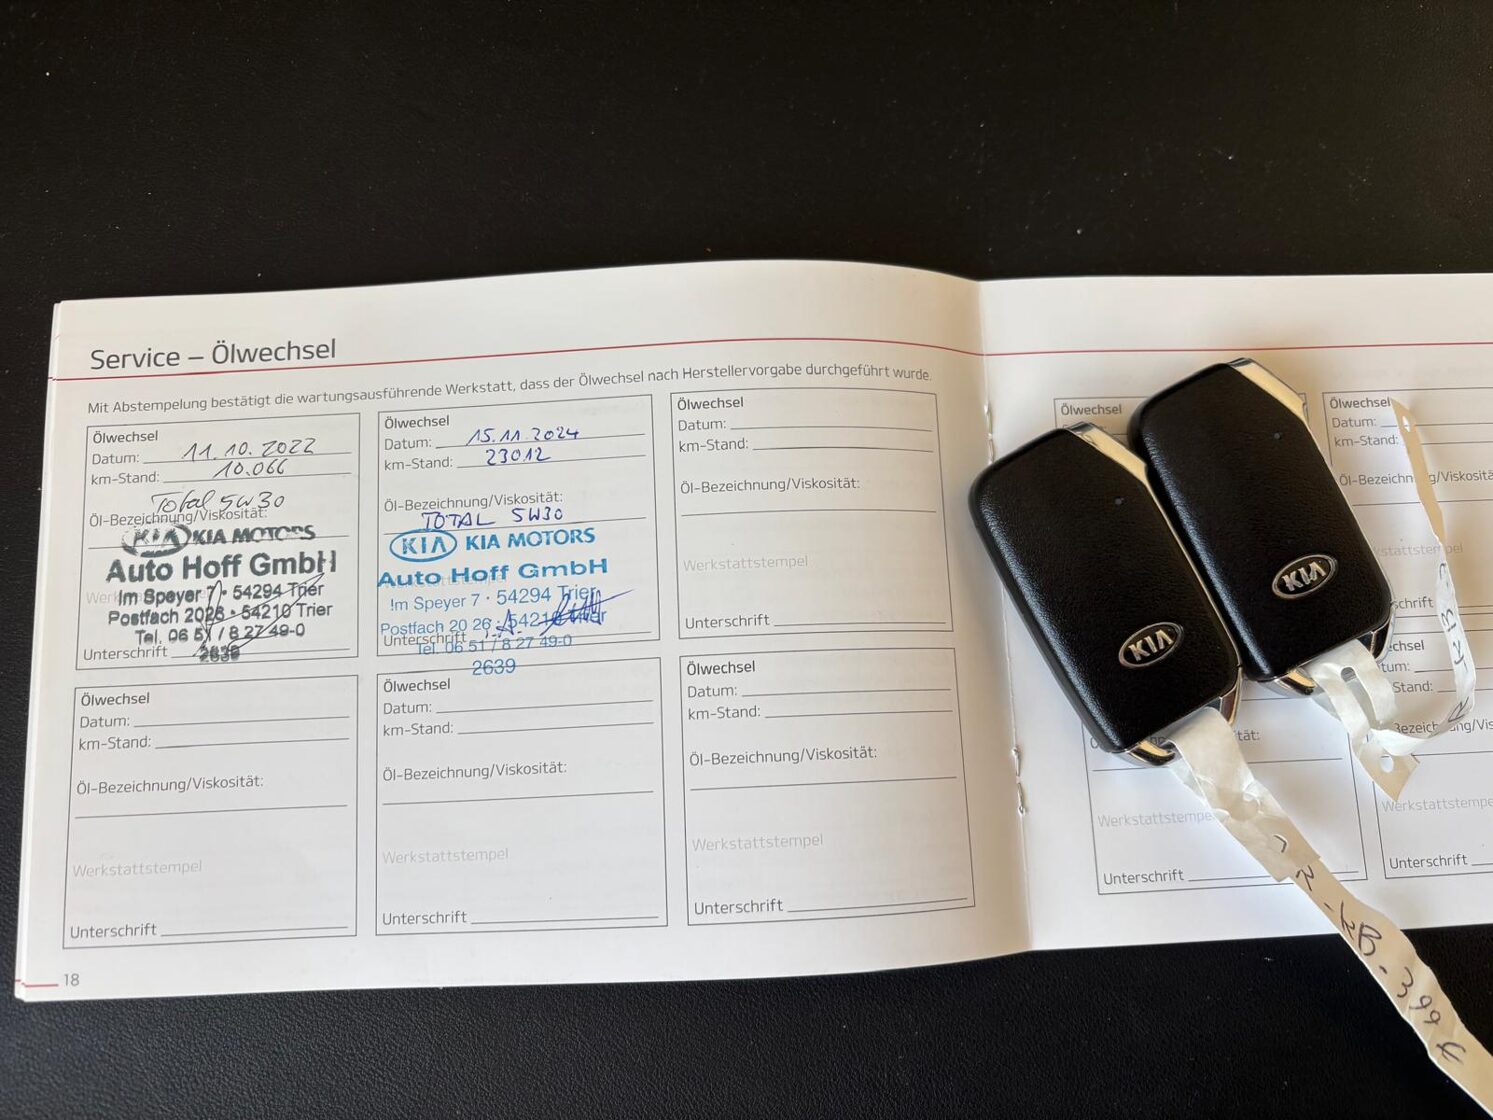 Service – Ölwechsel
Mit Abstempelung bestätigt die wartungsausführende Werkstatt, dass der Ölwechsel nach Herstellervorgabe durchgeführt wurde.
Ölwechsel
Datum: 11.10.2022
km-Stand: 10.066
Total 5W30
Öl-Bezeichnung/Viskosität:
KIA KIA MOTORS
Auto Hoff GmbH
Im Speyer 7 · 54294 Trier
Postfach 2026 · 54210 Trier
Tel. 06 51 / 8 27 49-0
Unterschrift
2639
Ölwechsel
Datum: 15.11.2024
km-Stand: 23012
Öl-Bezeichnung/Viskosität:
TOTAL 5W30
KIA KIA MOTORS
Auto Hoff GmbH
Im Speyer 7 · 54294 Trier
Postfach 20 26 · 54210 Trier
Unterschrift
Tel. 06 51 / 8 27 49-0
2639
Ölwechsel
Datum:
km-Stand:
Öl-Bezeichnung/Viskosität:
Werkstattstempel
Unterschrift
Ölwechsel
Datum:
km-Stand:
Öl-Bezeichnung/Viskosität:
Werkstattstempel
Unterschrift
Ölwechsel
Datum:
km-Stand:
Öl-Bezeichnung/Viskosität:
Werkstattstempel
Unterschrift
Ölwechsel
Datum:
km-Stand:
Öl-Bezeichnung/Viskosität:
Werkstattstempel
Unterschrift
18
Ölwechsel
Ölwechsel
Datum:
km-Stand:
Öl-Bezeichnung/Viskosität
KIA
KIA
Werkstattstempe
Unterschrift
Werkstattstempe
Unterschrift